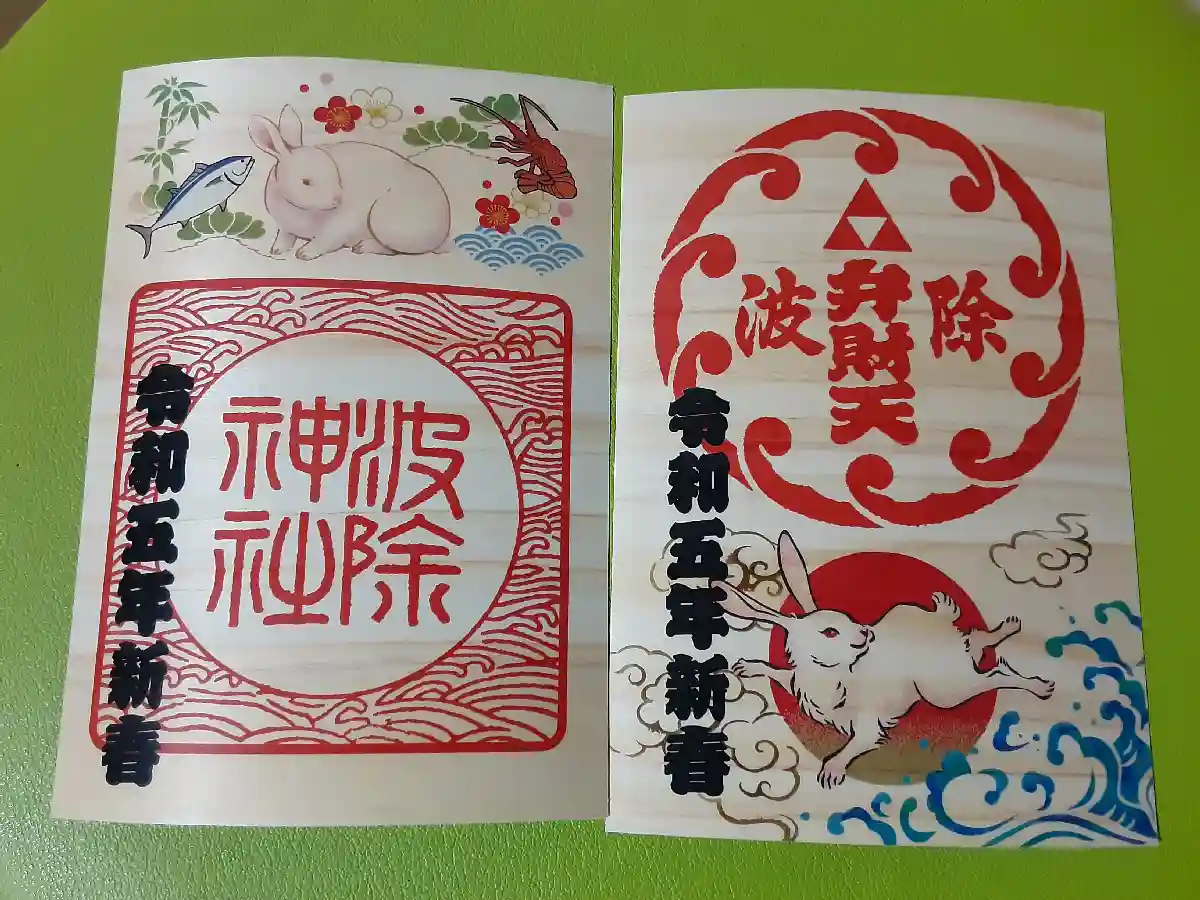 波除
神社
令和五年新春
波除
弁財天
令和五年新春